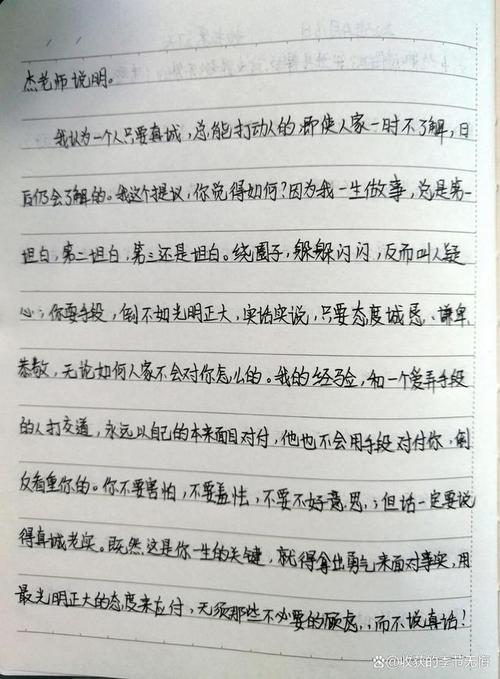 杰老师说明。
我认为一个人只要真诚，总能打动人的；即使人家一时不了解，日
后仍会了解的。我这个提议，你觉得如何？因为我一生做事，总是第一
坦白，第二坦白，第三还是坦白。绕圈子，躲躲闪闪，反而叫人疑
心；你耍手段，倒不如光明正大，实话实说，只要态度诚恳、谦卑、
恭敬，无论如何人家不会对你怎么的。我的经验，和一个爱弄手段
的人打交道，永远以自己的本来面目对付，他也不会用手段对付你，倒
反看重你的。你不要害怕，不要羞怯，不要不好意思；但话一定要说
得真诚老实。既然这是你一生的关键，就得拿出勇气来面对事实，用
最光明正大的态度来应付，无须那些不必要的顾虑，而不说真话！
@收获的季节无悔